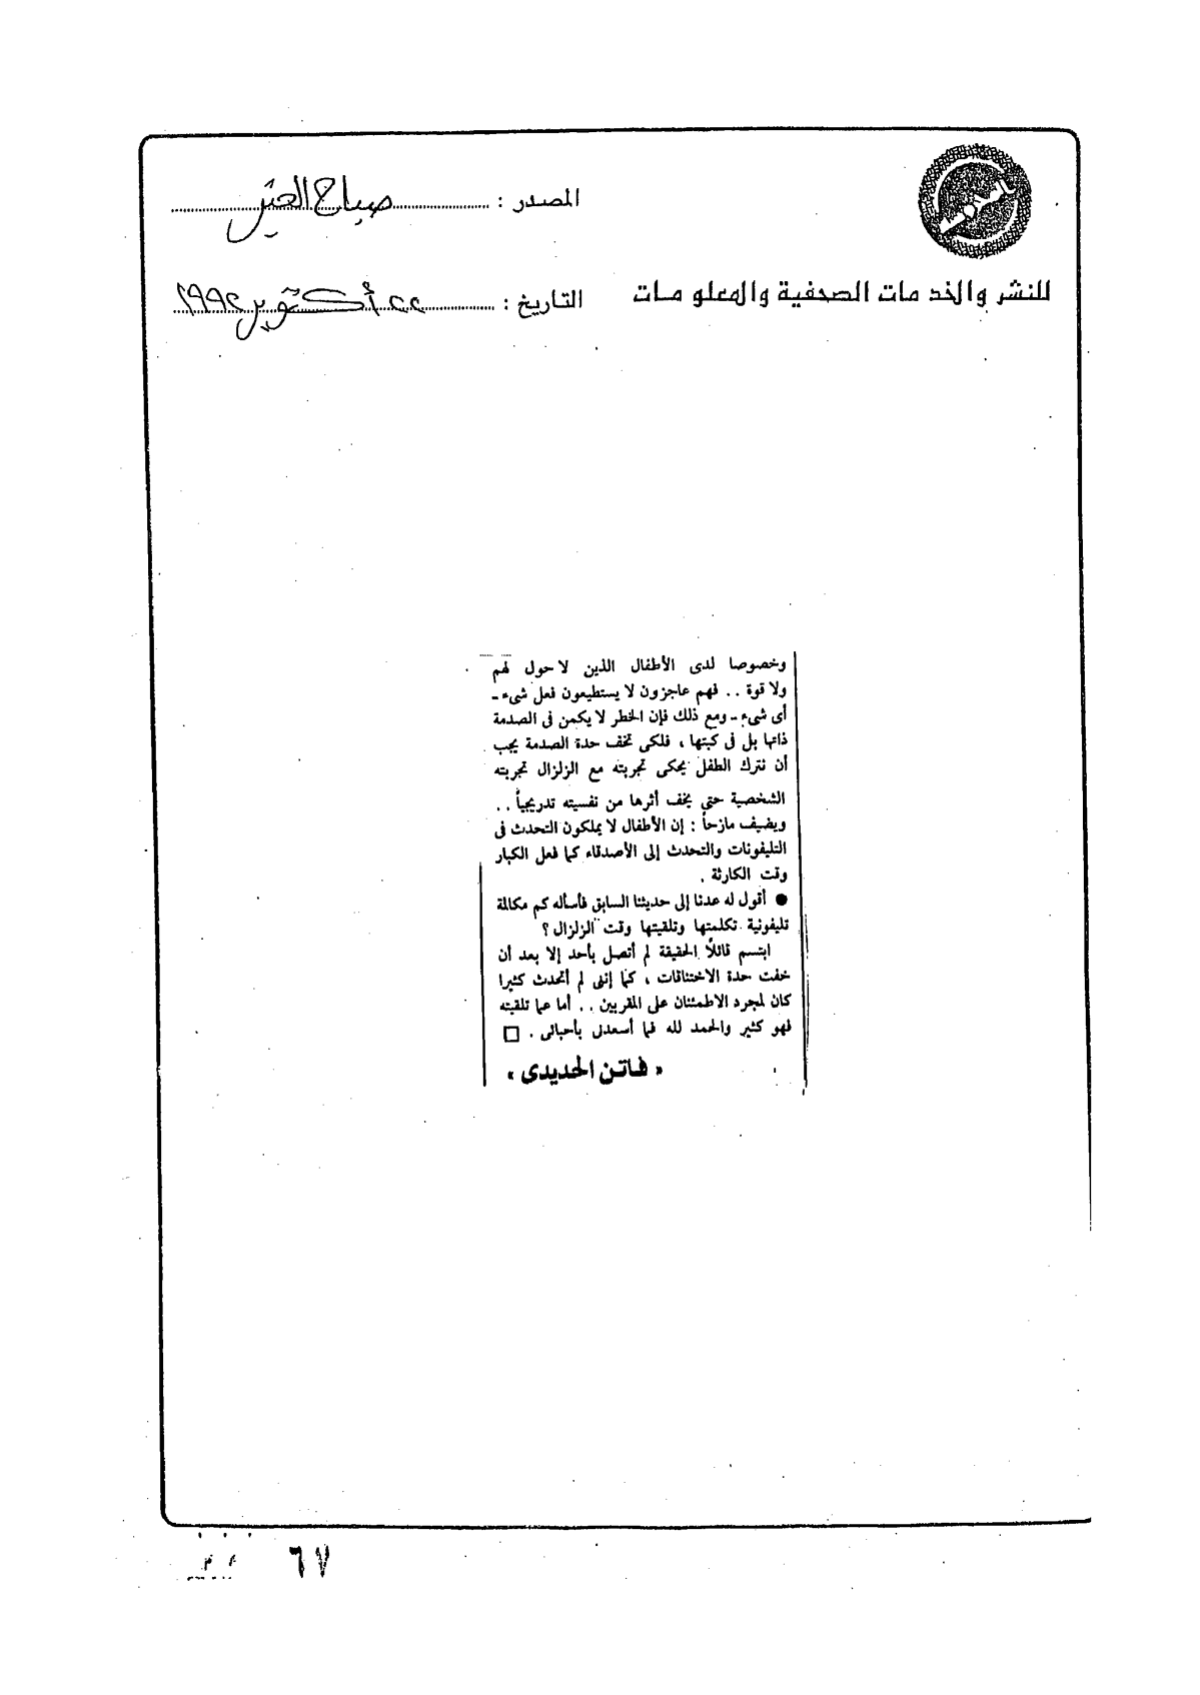 المصدر : صباح الخير
للنشر والخدمات الصحفية والمعلومات
التاريخ : ٢٢ أكتوبر ١٩٩٢
وخصوصا لدى الأطفال الذين لاحول لهم
ولا قوة .. فهم عاجزون لا يستطيعون فعل شىء ـ
أى شىء ـ ومع ذلك فإن الخطر لا يكمن فى الصدمة
ذاتها بل فى كبتها ، فلكى تخف حدة الصدمة يجب
أن نترك الطفل يحكى تجربته مع الزلزال تجربته
الشخصية حتى يخف أثرها من نفسيته تدريجياً ..
ويضيف مازحاً : إن الأطفال لا يملكون التحدث فى
التليفونات والتحدث إلى الأصدقاء كما فعل الكبار
وقت الكارثة .
● أقول له عدنا إلى حديثنا السابق فأسأله كم مكالمة
تليفونية تكلمتها وتلقيتها وقت الزلزال ؟
ابتسم قائلاً الحقيقة لم أتصل بأحد إلا بعد أن
خفت حدة الاختناقات ، كما إننى لم أتحدث كثيرا
كان لمجرد الاطمئنان على المقربين .. أما عما تلقيته
فهو كثير والحمد لله فما أسعدنى بأحبائى . □
« فاتن الحديدى »
٦٧